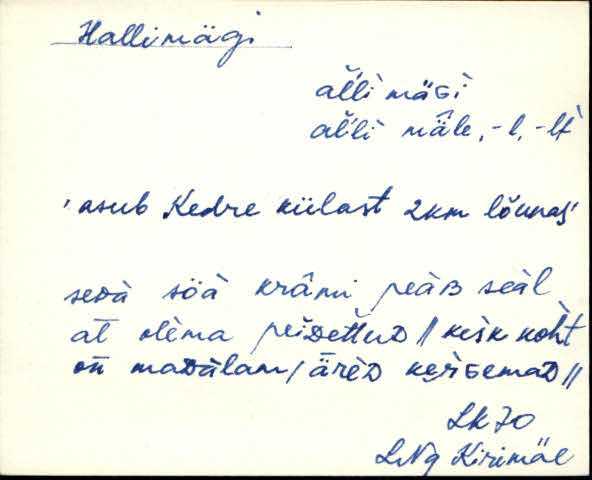 Hallimägi
al̆li mäGi
al̆li mäle, -l, -lt
'asub Kedre külast 2km lõunas'
sedà sõà krâmi peàB seàl
at olèma peiDettuD // kesk koht
on maDàlam / ärèD kerGemaD //
LK 70
LNg Kirimäe